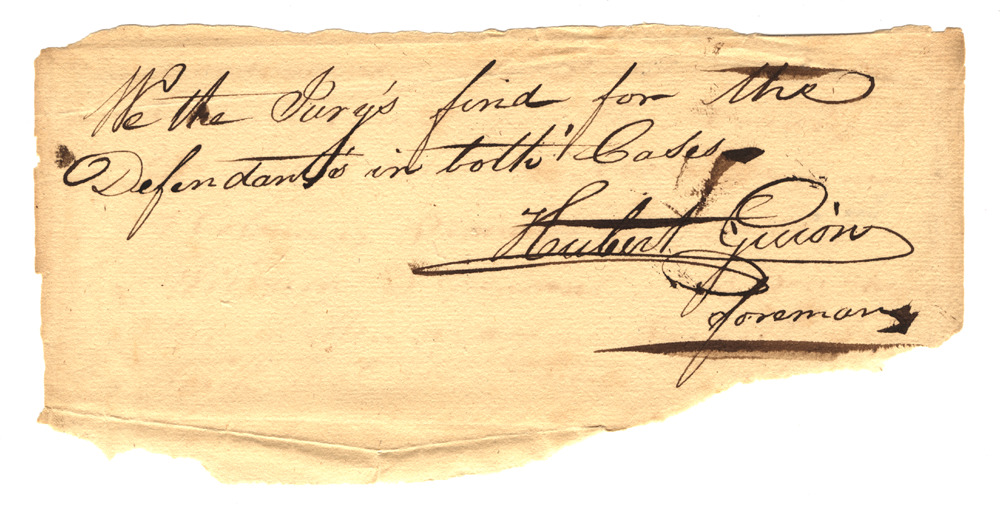 We the Jury's find for the
Defendant's in both Cases
Hubert Guion
foreman